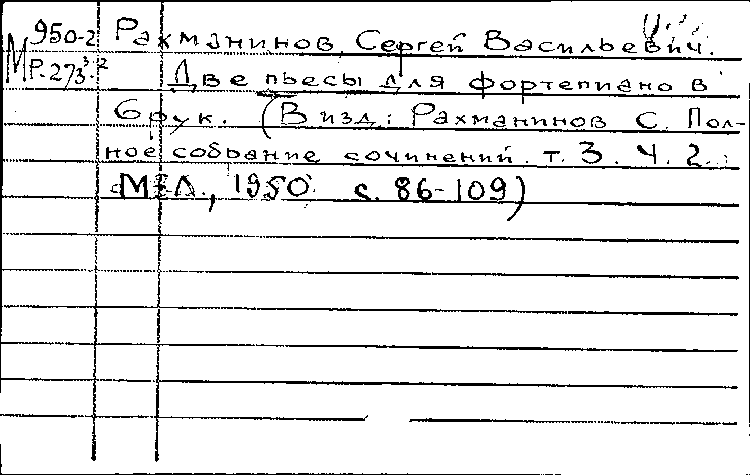 950-2 Рахманинов, Сергей Васильевич.
М Р-273³⁻² Две пьесы для фортепиано в
6 рук. (В изд.: Рахманинов С. Пол-
ное собрание сочинений. т. 3. Ч. 2.:
М-Л., 1950. с. 86-109)